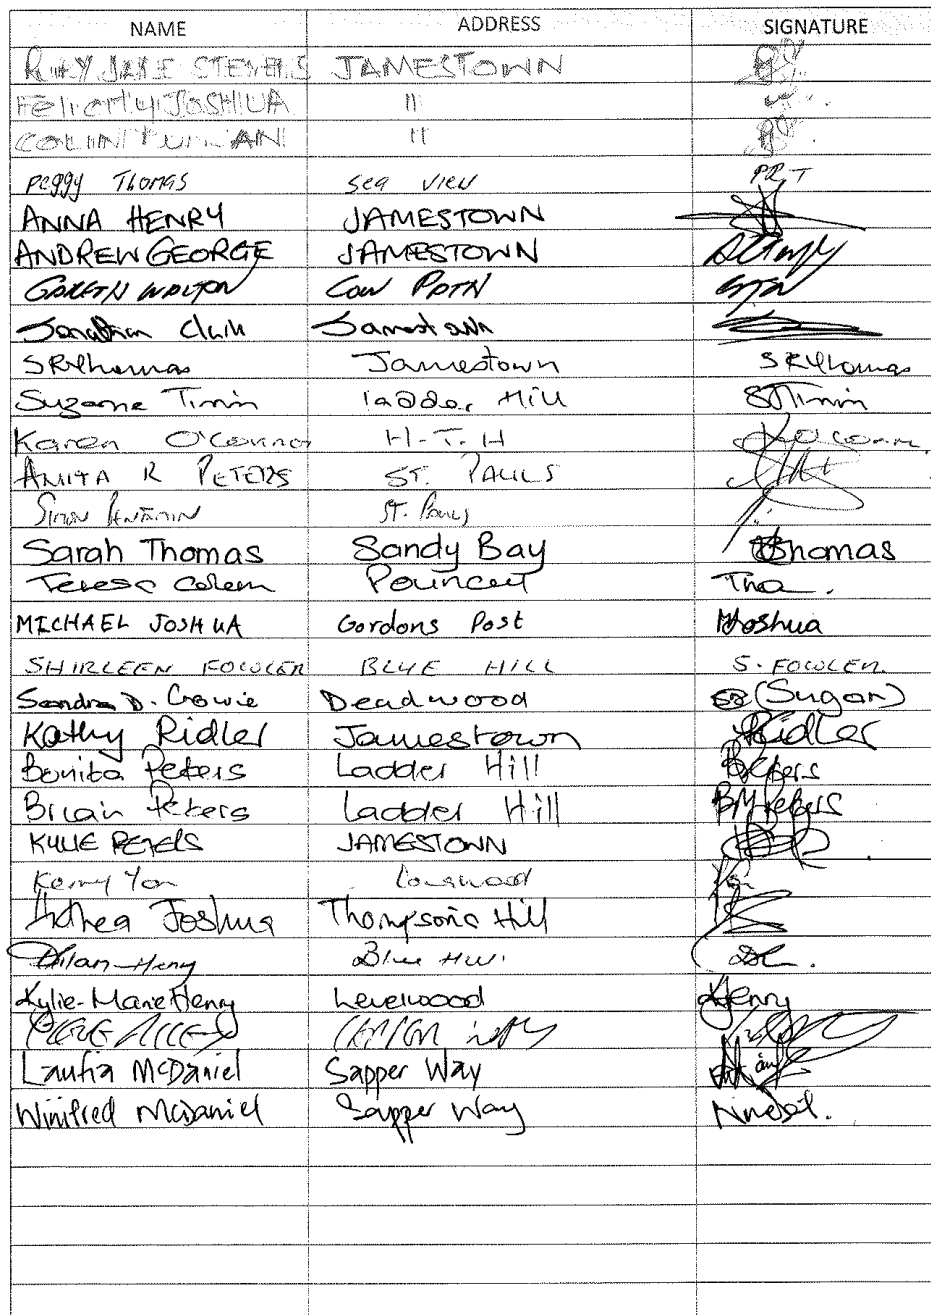 NAME ADDRESS SIGNATURE
JAMESTOWN
Felicity JOSHUA "
COLIN "
Peggy Thomas Sea View PR.T
ANNA HENRY JAMESTOWN
ANDREW GEORGE JAMESTOWN
GARETH WALTON COW PATH
Jonathan Clark Jamestown
SRYhomas Jamestown SRYhomas
Suzanne Timm ladder Hill STimm
Karen O'Connor H.T.H
ANITA R PETERS ST. PAULS
Simon Benjamin St. Pauls
Sarah Thomas Sandy Bay Thomas
Teresa Colem Pouncey
MICHAEL JOSHUA Gordons Post MJoshua
SHIRLEEN FOWLER BLUE HILL S. FOWLER
Sandra D. Crowie Deadwood (Sugar)
Kathy Ridler Jamestown KRidler
Bonita Peters Ladder Hill BPeters
Brian Peters Ladder Hill BMPeters
KYLIE PETERS JAMESTOWN
Kerry Yon Longwood Yon
Anthea Joshua Thompsons Hill
Dilan Henry Blue Hill
Kylie-Marie Henry Levelwood KHenry

McDaniel Sapper Way
Winifred McDaniel Sapper Way